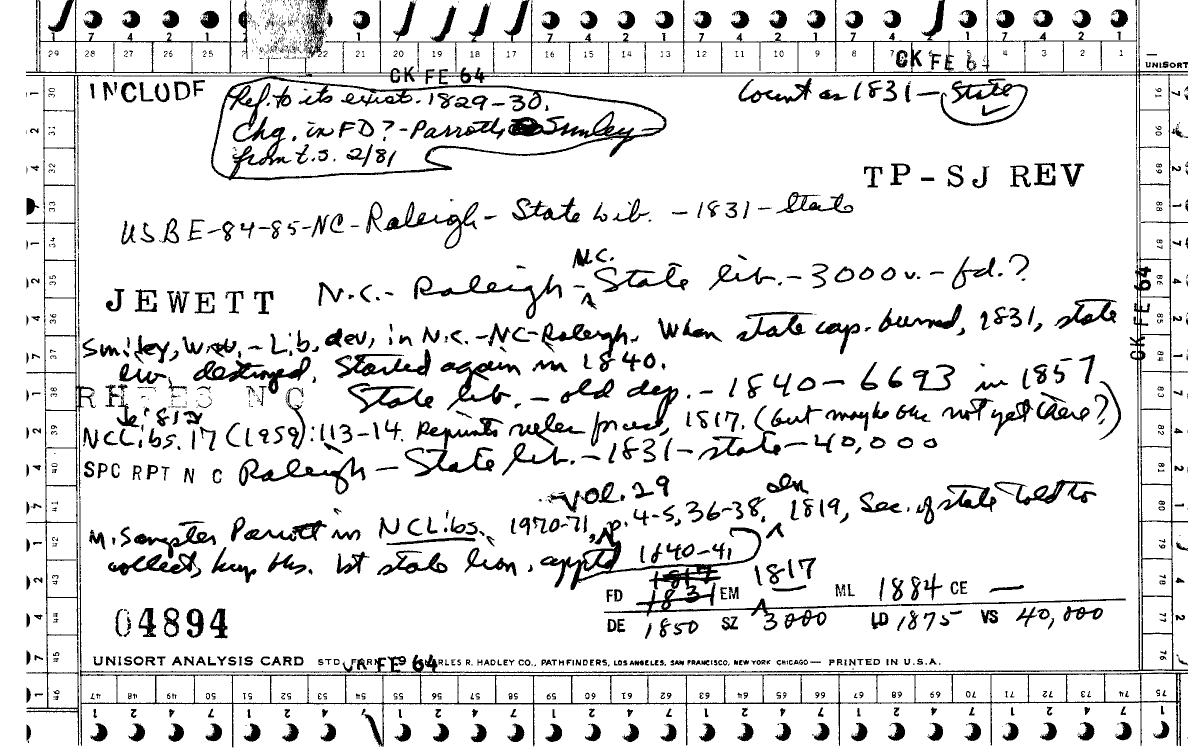 29 28 27 26 25 22 21 20 19 18 17 16 15 14 13 12 11 10 9 8 7 4 3 2 1
CK FE 64
CK FE 64
UNISORT
INCLUDE
Ref. to its exist. 1829-30.
Chg. in FD? - Parrott, Smiley
from t.s. 2/81
Count as 1831 - State
TP-SJ REV
USBE-84-85-NC-Raleigh-State Lib. -1831-State
JEWETT N.C.- Raleigh - N.C. State lib. - 3000v. - fd.?
Smiley, W.W. - Lib. dev. in N.C. -NC-Raleigh. When state cap. burned, 1831, state
lib. destroyed. Started again in 1840.
RHEES N C State lib. - old dep. - 1840 - 6693 in 1857
NCLibs. 17 (1959):113-14. Reprints rules 1817. (but maybe not yet there?)
SPC RPT N C Raleigh - State lib. - 1831 - state - 40,000
M. Sangster Parrott in NCLibs. vol. 29 1970-71, p. 4-5, 36-38, 1819, Sec. of state told to
collect, keep bks. 1st state appt'd 1840-41
FD 1817 1831 EM 1817 ML 1884 CE —
DE 1850 SZ 3000 LD 1875 VS 40,000
04894
CK FE 64
UNISORT ANALYSIS CARD STD. FORM CHARLES R. HADLEY CO., PATHFINDERS, LOS ANGELES, SAN FRANCISCO, NEW YORK CHICAGO — PRINTED IN U.S.A.
47 48 49 50 51 52 53 54 55 56 57 58 59 60 61 62 63 64 65 66 67 68 69 70 71 72 73 74 75